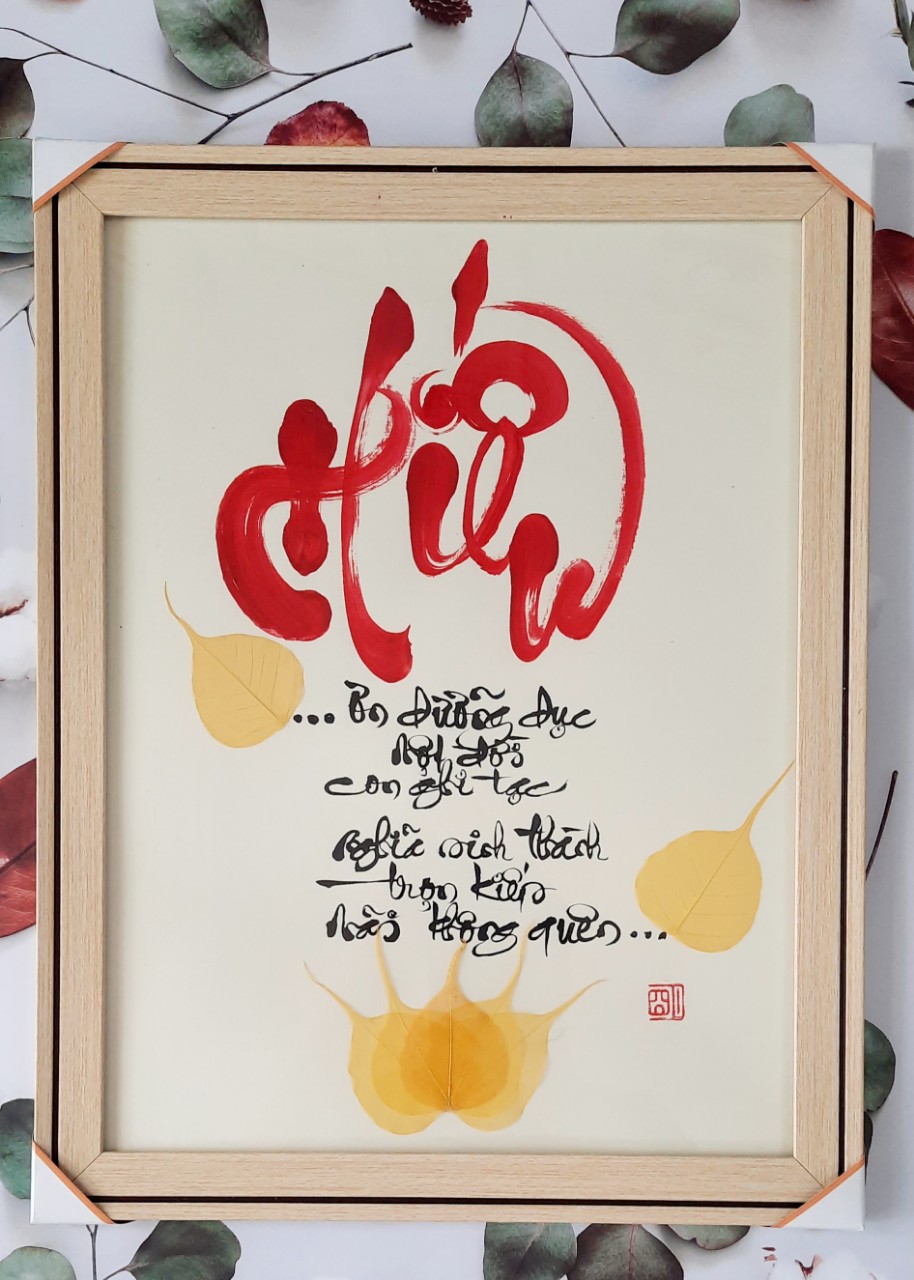 Hiếu
...Ơn dưỡng dục
một đời
con ghi tạc
nghĩa sinh thành
trọn kiếp
mãi không quên...